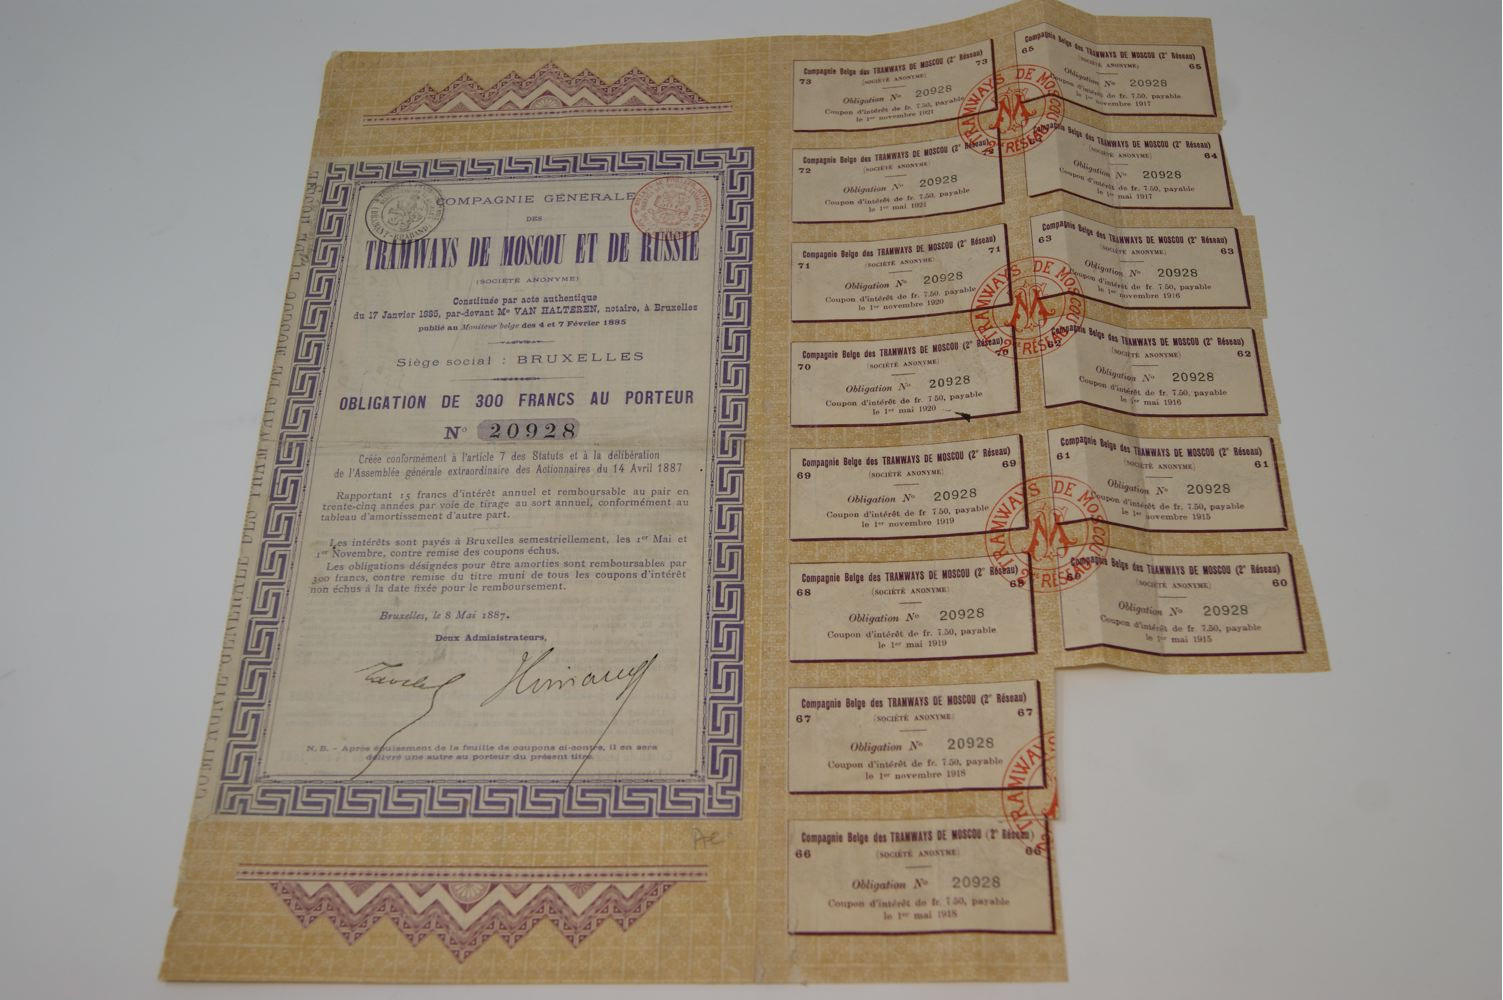 COMPAGNIE GÉNÉRALE
DES
TRAMWAYS DE MOSCOU ET DE RUSSIE
(SOCIÉTÉ ANONYME)
Constituée par acte authentique
du 17 Janvier 1885, par-devant Me VAN HALTEREN, notaire, à Bruxelles
publié au Moniteur belge des 4 et 7 Février 1885
Siège social : BRUXELLES
OBLIGATION DE 300 FRANCS AU PORTEUR
N° 20928
Créée conformément à l'article 7 des Statuts et à la délibération
de l'Assemblée générale extraordinaire des Actionnaires du 14 Avril 1887
Rapportant 15 francs d'intérêt annuel et remboursable au pair en
trente-cinq années par voie de tirage au sort annuel, conformément au
tableau d'amortissement d'autre part.
Les intérêts sont payés à Bruxelles semestriellement, les 1er Mai et
1er Novembre, contre remise des coupons échus.
Les obligations désignées pour être amorties sont remboursables par
300 francs, contre remise du titre muni de tous les coupons d'intérêt
non échus à la date fixée pour le remboursement.
Bruxelles, le 8 Mai 1887.
Deux Administrateurs,
N. B. - Après épuisement de la feuille de coupons ci-contre, il en sera
délivré une autre au porteur du présent titre.
COMPAGNIE GÉNÉRALE DES TRAMWAYS DE MOSCOU E
Compagnie Belge des TRAMWAYS DE MOSCOU (2e Réseau)
73 (SOCIÉTÉ ANONYME) 73
Obligation No 20928
Coupon d'intérêt de fr. 7.50, payable
le 1er novembre 1921
Compagnie Belge des TRAMWAYS DE MOSCOU (2e Réseau)
72 (SOCIÉTÉ ANONYME) 72
Obligation No 20928
Coupon d'intérêt de fr. 7.50, payable
le 1er mai 1921
Compagnie Belge des TRAMWAYS DE MOSCOU (2e Réseau)
71 (SOCIÉTÉ ANONYME) 71
Obligation No 20928
Coupon d'intérêt de fr. 7.50, payable
le 1er novembre 1920
Compagnie Belge des TRAMWAYS DE MOSCOU (2e Réseau)
70 (SOCIÉTÉ ANONYME) 70
Obligation No 20928
Coupon d'intérêt de fr. 7.50, payable
le 1er mai 1920
Compagnie Belge des TRAMWAYS DE MOSCOU (2e Réseau)
69 (SOCIÉTÉ ANONYME) 69
Obligation No 20928
Coupon d'intérêt de fr. 7.50, payable
le 1er novembre 1919
Compagnie Belge des TRAMWAYS DE MOSCOU (2e Réseau)
68 (SOCIÉTÉ ANONYME) 68
Obligation No 20928
Coupon d'intérêt de fr. 7.50, payable
le 1er mai 1919
Compagnie Belge des TRAMWAYS DE MOSCOU (2e Réseau)
67 (SOCIÉTÉ ANONYME) 67
Obligation No 20928
Coupon d'intérêt de fr. 7.50, payable
le 1er novembre 1918
Compagnie Belge des TRAMWAYS DE MOSCOU (2e Réseau)
66 (SOCIÉTÉ ANONYME) 66
Obligation No 20928
Coupon d'intérêt de fr. 7.50, payable
le 1er mai 1918
Compagnie Belge des TRAMWAYS DE MOSCOU (2e Réseau)
65 (SOCIÉTÉ ANONYME) 65
Obligation No 20928
Coupon d'intérêt de fr. 7.50, payable
le 1er novembre 1917
Compagnie Belge des TRAMWAYS DE MOSCOU (2e Réseau)
(SOCIÉTÉ ANONYME) 64
Obligation No 20928
Coupon d'intérêt de fr. 7.50, payable
le 1er mai 1917
Compagnie Belge des TRAMWAYS DE MOSCOU (2e Réseau)
63 (SOCIÉTÉ ANONYME) 63
Obligation No 20928
Coupon d'intérêt de fr. 7.50, payable
le 1er novembre 1916
Compagnie Belge des TRAMWAYS DE MOSCOU (2e Réseau)
62 (SOCIÉTÉ ANONYME) 62
Obligation No 20928
Coupon d'intérêt de fr. 7.50, payable
le 1er mai 1916
Compagnie Belge des TRAMWAYS DE MOSCOU (2e Réseau)
61 (SOCIÉTÉ ANONYME) 61
Obligation No 20928
Coupon d'intérêt de fr. 7.50, payable
le 1er novembre 1915
Compagnie Belge des TRAMWAYS DE MOSCOU (2e Réseau)
60 (SOCIÉTÉ ANONYME) 60
Obligation No 20928
Coupon d'intérêt de fr. 7.50, payable
le 1er mai 1915
TRAMWAYS DE MOSCOU
2me RÉSEAU
TRAMWAYS DE MOSCOU
2me RÉSEAU
TRAMWAYS DE MOSCOU
2me RÉSEAU
TRAMWAY